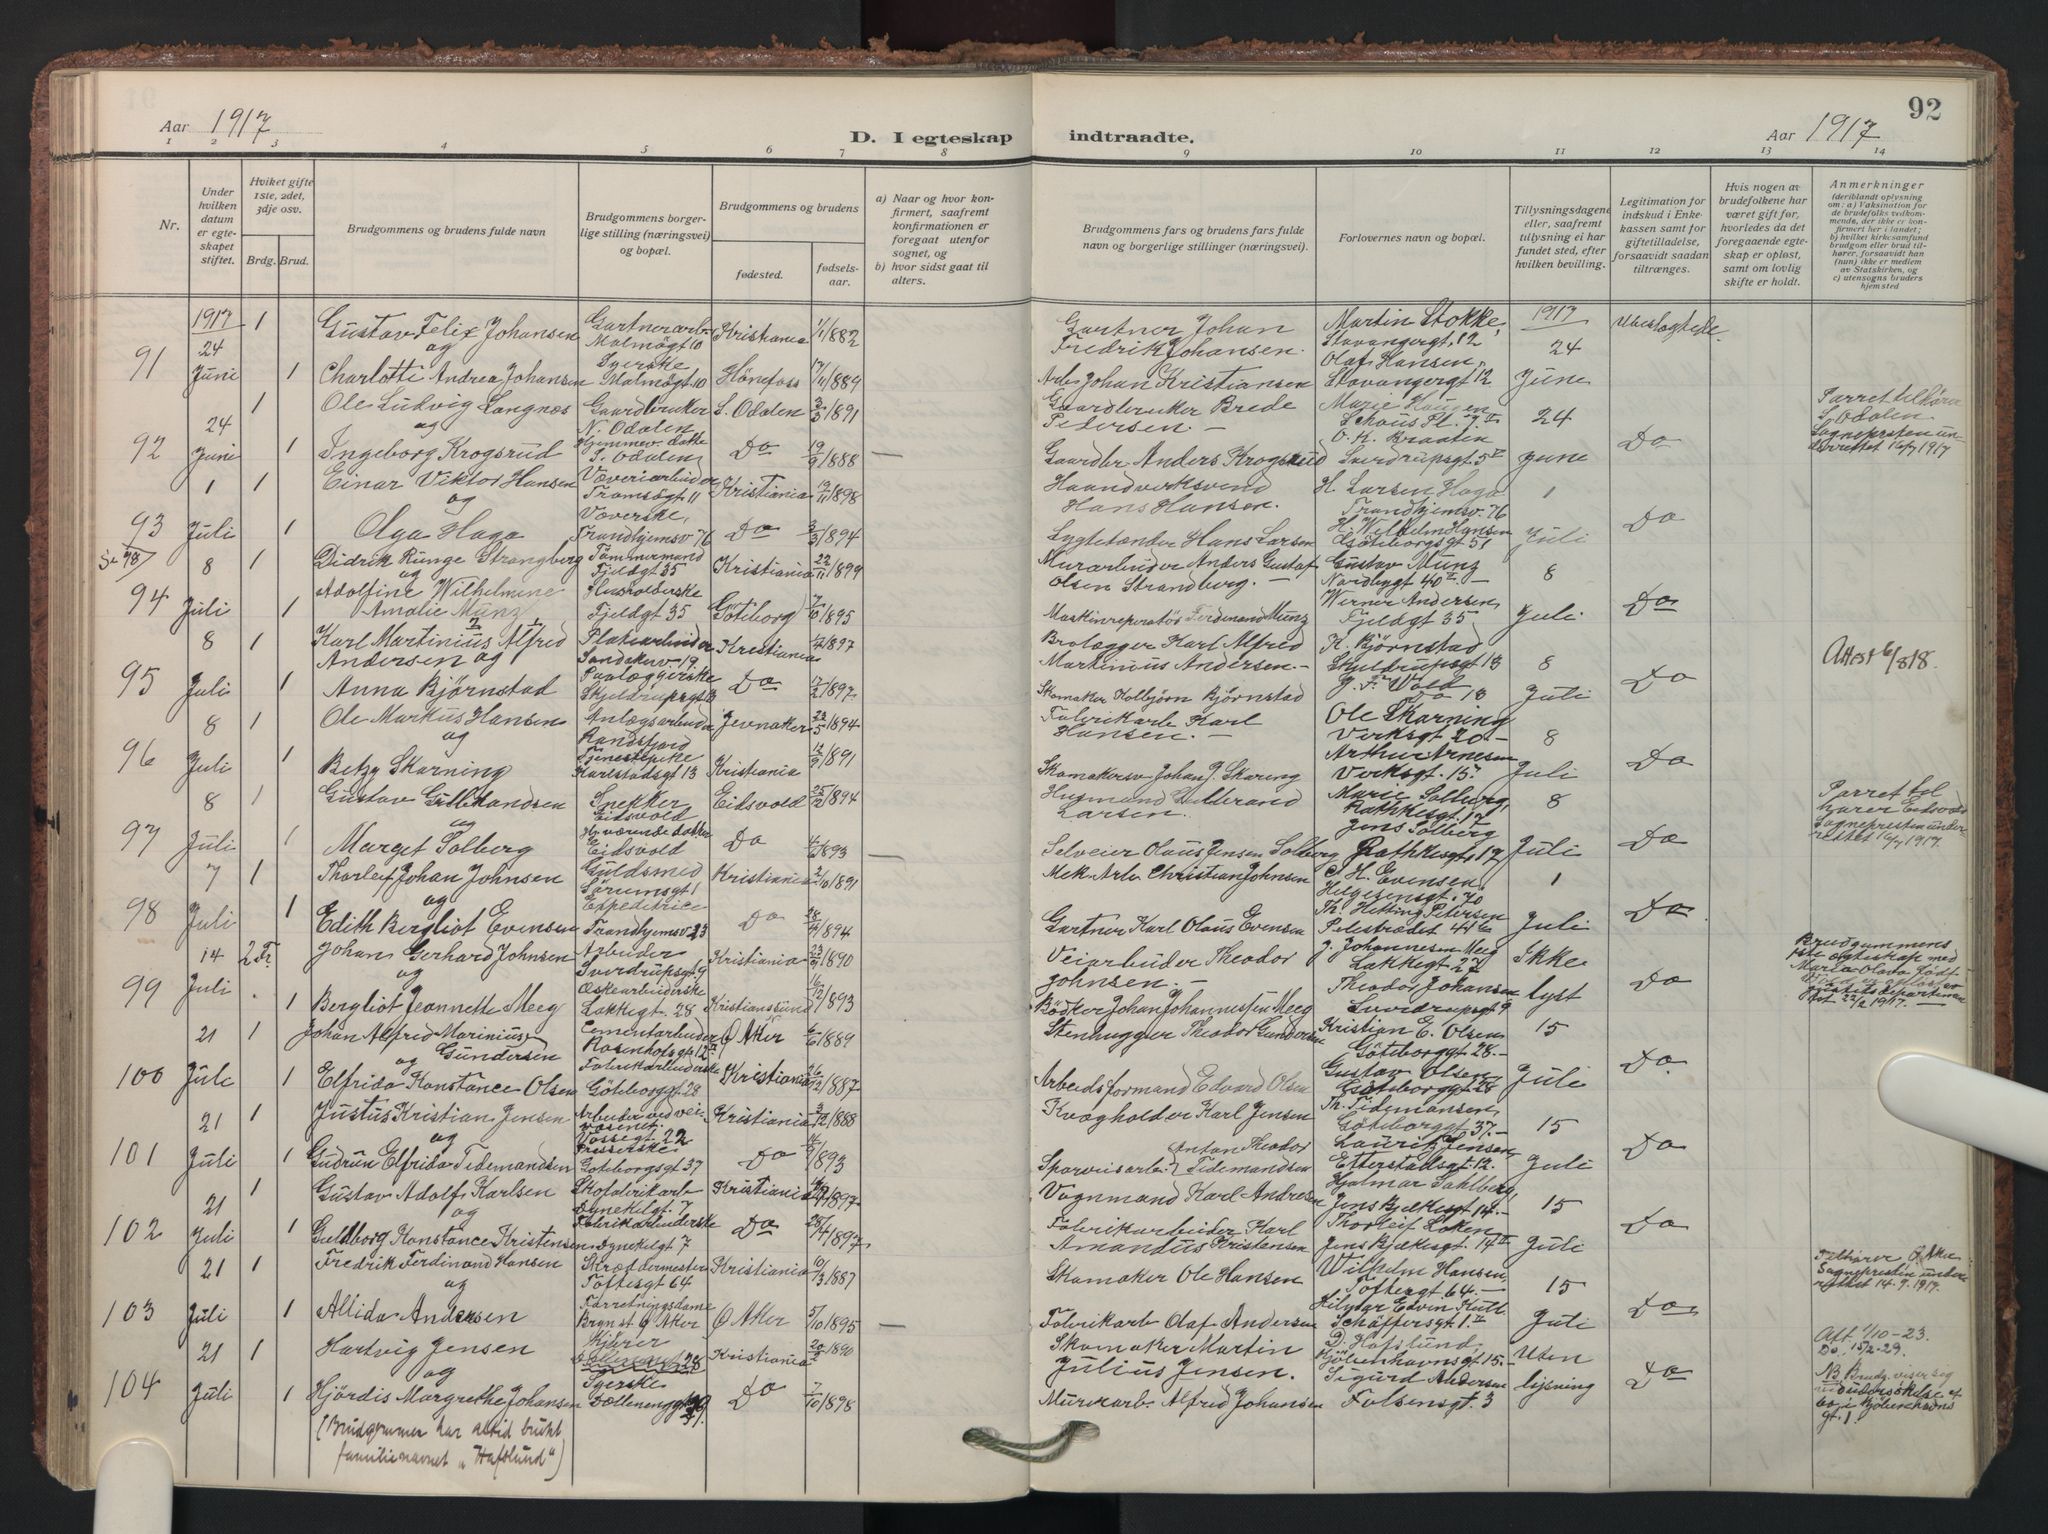 92
Aar 1917
D. I egteskap indtraadte.
Aar 1917
1 2 3 4 5 6 7 8 9 10 11 12 13 14
Nr.
Under hvilken datum er egteskapet stiftet.
Hvilket gifte 1ste, 2det, 3dje osv.
Brdg. Brud.
Brudgommens og brudens fulde navn
Brudgommens borgerlige stilling (næringsvei) og bopæl.
Brudgommens og brudens
fødested.
fødselsaar.
a) Naar og hvor konfirmert, saafremt konfirmationen er foregaat utenfor sognet, og
b) hvor sidst gaat til alters.
Brudgommens fars og brudens fars fulde navn og borgerlige stillinger (næringsvei).
Forlovernes navn og bopæl.
Tillysningsdagene eller, saafremt tillysning ei har fundet sted, efter hvilken bevilling.
Legitimation for indskud i Enkekassen samt for giftetilladelse, forsaavidt saadan tiltrænges.
Hvis nogen av brudefolkene har været gift før, hvorledes da det foregaaende egteskap er opløst, samt om lovlig skifte er holdt.
Anmerkninger (deriblandt oplysning om: a) Vaksination for de brudefolks vedkommende, der ikke er konfirmert her i landet; b) hvilket kirkesamfund brudgom eller brud tilhører, forsaavidt han (hun) ikke er medlem av Statskirken, og c) utensogns bruders hjemsted
91 1917 24 Juni 1 Gustav Felix Johansen og Gartnerarb. Malmøgt 10 Kristiania 1/1 1882 Gartner Johan Fredrik Johansen. Martin Stokke, Stavangergt. 12 1917 24 June Ubeslegtede.
1 Charlotti Andrea Johansen Syerske Malmøgt 10 Hønefoss 17/11 1889 Arb. Johan Kristiansen Olaf Hansen, Stavangergt 12
92 24 Juni 1 Ole Ludvig Langnæs og Gaardbruker N. Odalen S. Odalen 3/3 1891 Gaardbruker Brede Pedersen. — Marie Haugen Schous Pl. 7 II 24 June Do Parret tilhører S. Odalen. Sognepresten underrettet 16/7 1917
1 Ingeborg Krogsrud Hjemmev. datte S. Odalen Do 19/9 1888 — Gaardbr Anders Krogsrud O. K. Braaten Sverdrupsgt 5 V
93 1 Juli 1 Einar Viktor Hansen og Væveriarbeider Tromsøgt 11 Kristiania 19/11 1898 Haandverksvend Hans Hansen. H. Larsen Haga Trondhjemsv. 76 1 Juli Do
1 Olga Haga Væverske, Trondhjemsv 76 Do 3/3 1894 Lygtetænder Hans Larsen H. Wilhelm Hansen Gøteborgsgt 51
Se 98
94 8 Juli Didrik Runge Strangberg og Tømmermand Fjeldgt 35 Kristiania 22/11 1899 Murarbeider Anders Gustaf Olsen Strandberg. — Gustav Munz Nordbygt 40 II — 8 Juli Do
1 Adolfine Wilhelmine Amalie Munz Husholderske Fjeldgt 35 Göteborg 7/10 1895 Maskinreperatør Ferdinand Munz Werner Andersen, Fjeldgt 35
95 8 Juli 1 Karl Martinius Alfred Andersen og Platearbeider Sandakerv. 19. Kristiania 1/4 1897 Brolægger Karl Alfred Martinius Andersen. — K. Bjørnstad Skjeldrupsgt 13 8 Juli Do Attest 6/8 18.
1 Anna Bjørnstad Paalæggerske Skjeldrupsgt 13 Do 17/2 1897. Skomaker Kolbjørn Bjørnstad J. Fr. Wold Do 13
96 8 Juli 1 Ole Markus Hansen og Anlægsarbeider Randsfjord Jevnaker 23/5 1894 Fabrikarb Karl Hansen. — Ole Skarning Verksgt 20. — 8 Juli Do
1 Betzy Skarning Tjenestepike Karlstadsgt 13 Kristiania 12/9 1891 Skomakersv Johan J. Skarning Arthur Arnesen Verksgt. 15.
97 8 Juli 1 Gustav Gulbrandsen og Snekker Eidsvold Eidsvold 25/12 1894 Husmand Gulbrand Larsen. Marie Solberg, Rathkesgt. 17 8 Juli Do Parret tilhører Eidsvold Sognepresten underrettet 16/7 1917.
1 Marget Solberg Hj. værende datter Eidsvold Do 1/6 1893 — Selveier Olaus Jensen Solberg Jens Solberg Rathkesgt. 17
98 7 Juli 1 Thorleif Johan Johnsen og Guldsmed Sørumsgt 1 Kristiania 2/10 1891 Mek. Arb. Christian Johnsen C. H. Evensen, Helgesensgt. 70 1 Juli Do
1 Edith Bergliot Evensen Expeditrice Trondhjemsv 23 Do 28/4 1894 Gartner Karl Olaus Evensen Th. Hetting Petersen Pilestrædet 44 b
99 14 Juli 2 Fr. Johan Gerhard Johnsen og Arbeider Sverdrupsgt 9 Kristiania 23/9 1890 Veiarbeider Theodor Johnsen. — J. Johannesen Meeg Lakkegt. 27 Ikke lyst Do Brudgommens 1ste egteskap med Maria Olava født opløst av Justitsdepartementet 22/2 1917.
1 Bergliot Jeannette Meeg Æskearbeiderske Lakkegt. 28 Kristianssund 6/12 1893 Bødker Johan Johannessen Meeg Theodor Johansen Sverdrupsgt 9
100 21 Jule 1 Johan Alfred Marinius Gundersen og Cementarbeider Rosenhofsgt 12 II Ø Aker 6/6 1889 Stenhugger Theodor Gundersen Kristian E. Olsen Göteborggt 28. — 15 Juli Do.
1 Elfrida Konstance Olsen Fabrikarbeiderske Göteborggt 28 Kristiania 26/12 1887 Arbeidsformand Edvard Olsen Gustav Olsen Göteborggt 28
101 21 Juli 1 Justus Kristian Jensen og Arbeider ved veivæsenet. Vossegt. 22 Kristiania 3/12 1888 Kvægholder Karl Jensen Th. Tidemansen, Göteborggt 37. — 15 Juli Do
1 Gudrun Elfrida Tidemandsen Prisserske Göteborgsgt 37 Do 14/9 1893 Sporveisarb. Anton Theodor Tidemandsen Lauritz Jensen Etterstadsgt. 12.
102 21 Juli 1 Gustav Adolf Karlsen og Skofabrikarb Dynekilgt 7 Kristiania 1897. Vognmand Karl Andresen Hjalmar Sahlberg, Jens Bjelkesgt 14. — 15 Juli Do
1 Guldborg Konstance Kristensen Fabrikarbeiderske Dynekilgt 7 Do 28/4 1897 Fabrikarbeider Karl Amandus Kristensen Thorleif Løken Jens Bjelkesgt. 14 II
103 21 Juli 1 Fredrik Ferdinand Hansen og Skræddermester Toftesgt 64 Kristiania 10/3 1887 Skomaker Ole Hansen Wilhelm Hansen, Toftesgt 64. — 15 Juli Do Tilhører Ø Aker Sognepresten underrettet 14.9.1917.
1 Allida Andersen Forretningsdame Bryn st Ø Aker Ø Aker 5/10 1895 — Fabrikarb Olaf Andersen Edvin Schäffersgt 1 II
104 21 Juli 1 Hartvig Jensen og Kjører Kristiania 20/2 1890 Skomaker Martin Julius Jensen. D. Hofslund, Kjøbenhavnsgt 15. — Uten lysning Do Att. 1/10 - 23. Do. 15/2 - 29.
1 Hjördis Margrethe Johansen Syerske Dællenenggt Do 7/10 1898 Murarb. Alfred Johansen Sigurd Andersen Falsensgt. 3 NB Brudg. viser sig bo i Kjöbenhavnsgt. 1.
(Brudgommen har altid brukt familienavnet „Hafslund")